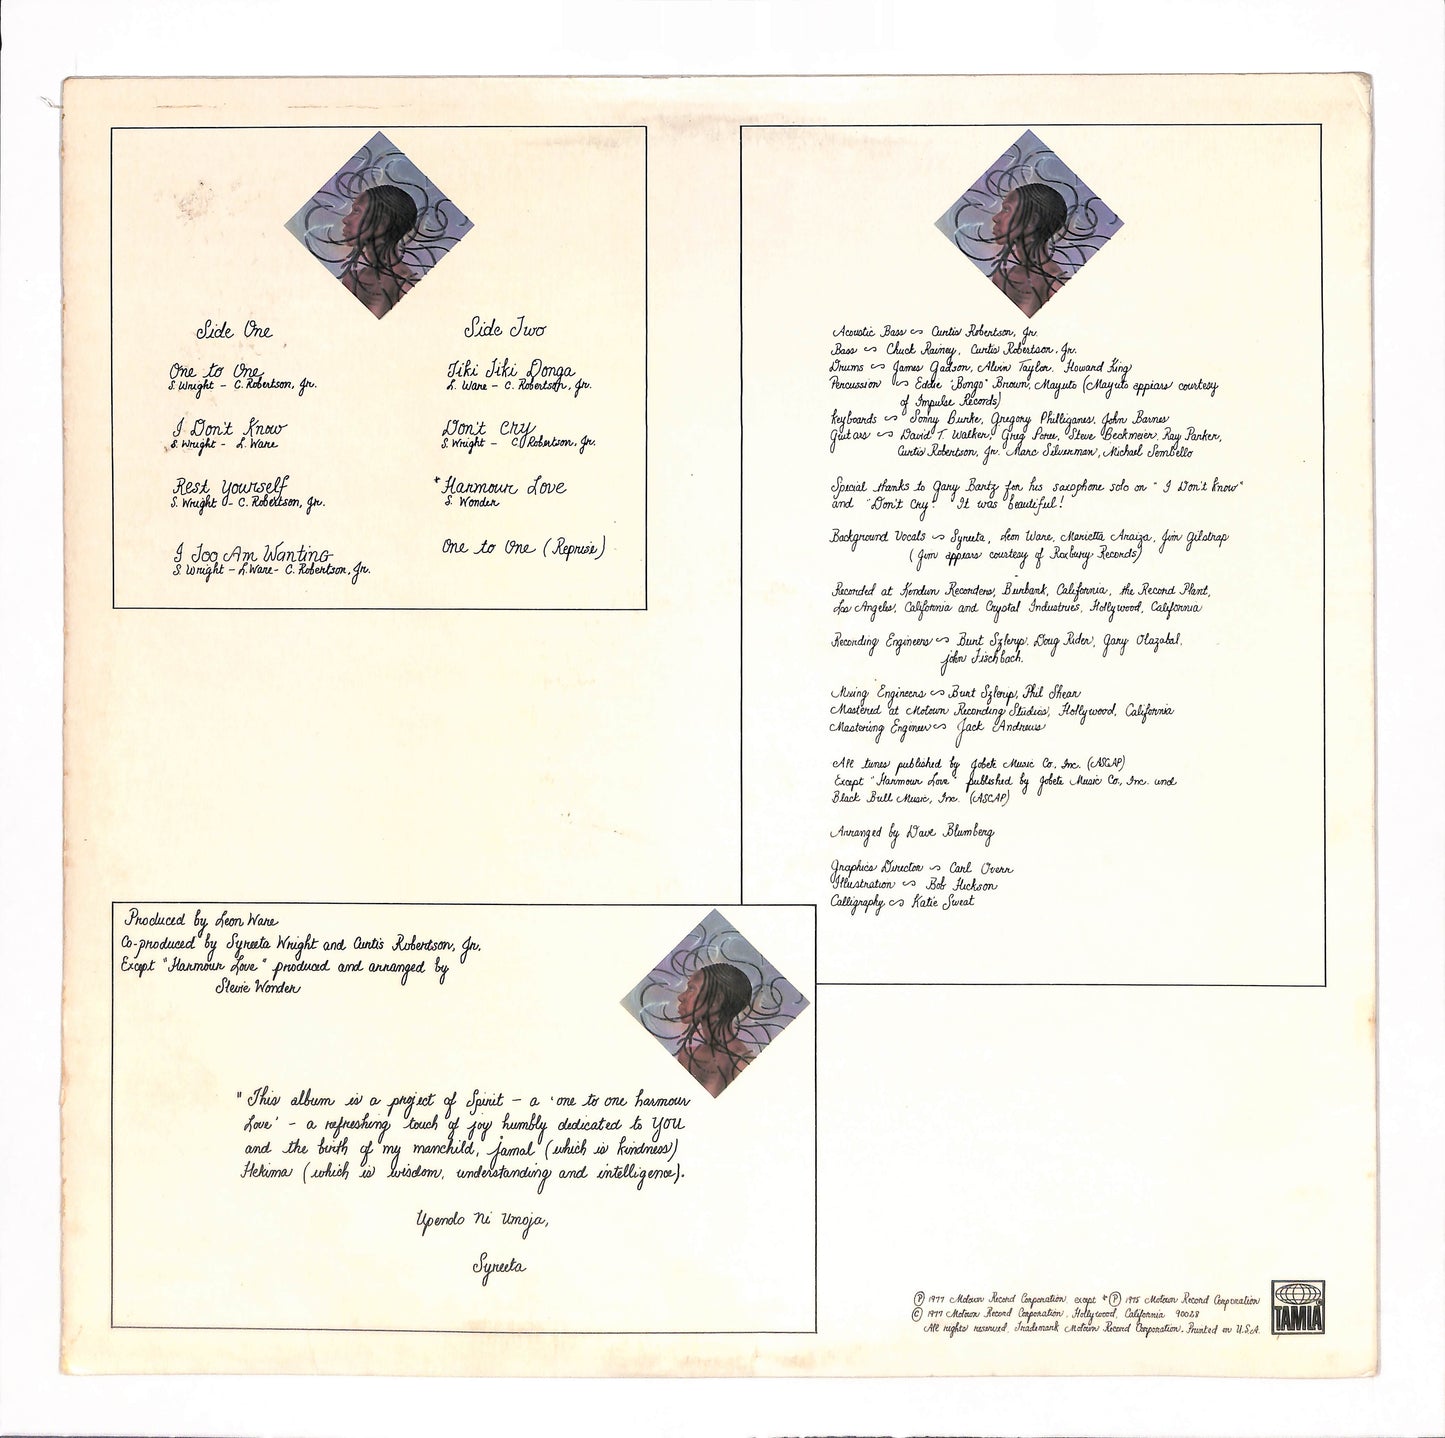 Side One
One to One
S. Wright - C. Robertson, Jr.
I Don't Know
S. Wright - L. Ware
Rest Yourself
S. Wright - C. Robertson, Jr.
I Too Am Wanting
S. Wright - L. Ware - C. Robertson, Jr.
Side Two
Tiki Tiki Donga
L. Ware - C. Robertson, Jr.
Don't Cry
S. Wright - C. Robertson, Jr.
*Harmour Love
S. Wonder
One to One (Reprise)
Acoustic Bass ~ Curtis Robertson, Jr.
Bass ~ Chuck Rainey, Curtis Robertson, Jr.
Drums ~ James Gadson, Alvin Taylor, Howard King
Percussion ~ Eddie "Bongo" Brown, Mayuto (Mayuto appears courtesy
of Impulse Records)
Keyboards ~ Sonny Burke, Gregory Philliganes, John Barnes
Guitars ~ David T. Walker, Greg Poree, Steve Beckmeier, Ray Parker,
Curtis Robertson, Jr. Marc Silverman, Michael Sembello
Special thanks to Gary Bartz for his saxophone solo on "I Don't Know"
and "Don't Cry." It was beautiful!
Background Vocals ~ Syreeta, Leon Ware, Marietta Araiza, Jim Gilstrap
(Jim appears courtesy of Roxbury Records)
Recorded at Kendun Recorders, Burbank, California, the Record Plant,
Los Angeles, California and Crystal Industries, Hollywood, California
Recording Engineers ~ Burt Szlerup, Doug Rider, Gary Olazabal,
John Fischbach.
Mixing Engineers ~ Burt Szlerup, Phil Shear
Mastered at Motown Recording Studios, Hollywood, California
Mastering Engineer ~ Jack Andrews
All tunes published by Jobete Music Co., Inc. (ASCAP)
Except "Harmour Love" published by Jobete Music Co., Inc. and
Black Bull Music, Inc. (ASCAP)
Arranged by Dave Blumberg
Graphics Director ~ Carl Overr
Illustration ~ Bob Hickson
Calligraphy ~ Katie Sweat
Produced by Leon Ware
Co-produced by Syreeta Wright and Curtis Robertson, Jr.
Except "Harmour Love" produced and arranged by
Stevie Wonder
"This album is a project of Spirit - a 'one to one harmour
Love' - a refreshing touch of joy humbly dedicated to YOU
and the birth of my manchild, Jamal (which is kindness)
Hekima (which is wisdom, understanding and intelligence).
Upendo Ni Umoja,
Syreeta
Ⓟ 1977 Motown Record Corporation, except * Ⓟ 1975 Motown Record Corporation
© 1977 Motown Record Corporation, Hollywood, California 90028
All rights reserved, Trademark Motown Record Corporation. Printed in U.S.A.
TAMLA